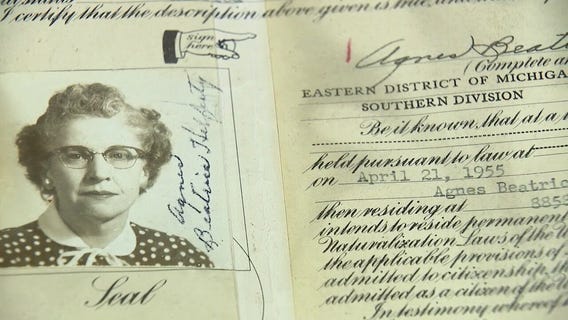 I certify that the description above given is true, and
sign
here
Agnes
Beatrice
Seal
Agnes
(Complete
EASTERN DISTRICT OF MICHIGA
SOUTHERN DIVISION
Be it known, that at a
held pursuant to law at
on April 21, 1955
Agnes Beatric
then residing at 885
intends to reside permanent
Naturalization Laws of the U
the applicable provisions of
admitted to citizenship, th
admitted as a citizen of the U
In testimony whereof